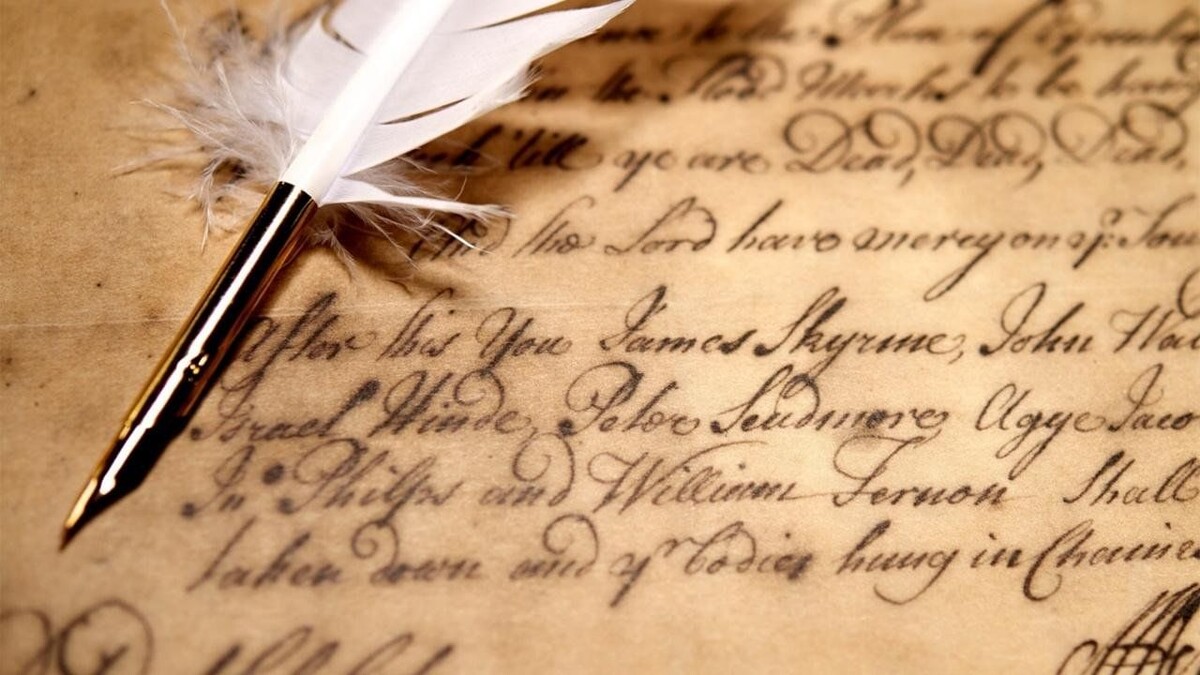 to the Place of
in the Road Marks to be hang
'till ye are Dead, Dead, Dead,
And the Lord have mercy on yr. Sou
After this You James Skyrme, John Wa
Israel Hinde, Peter Scudmore Agge Jaco
Jno Philps and William Fernon Shall
taken down and yr bodies hung in Chaines